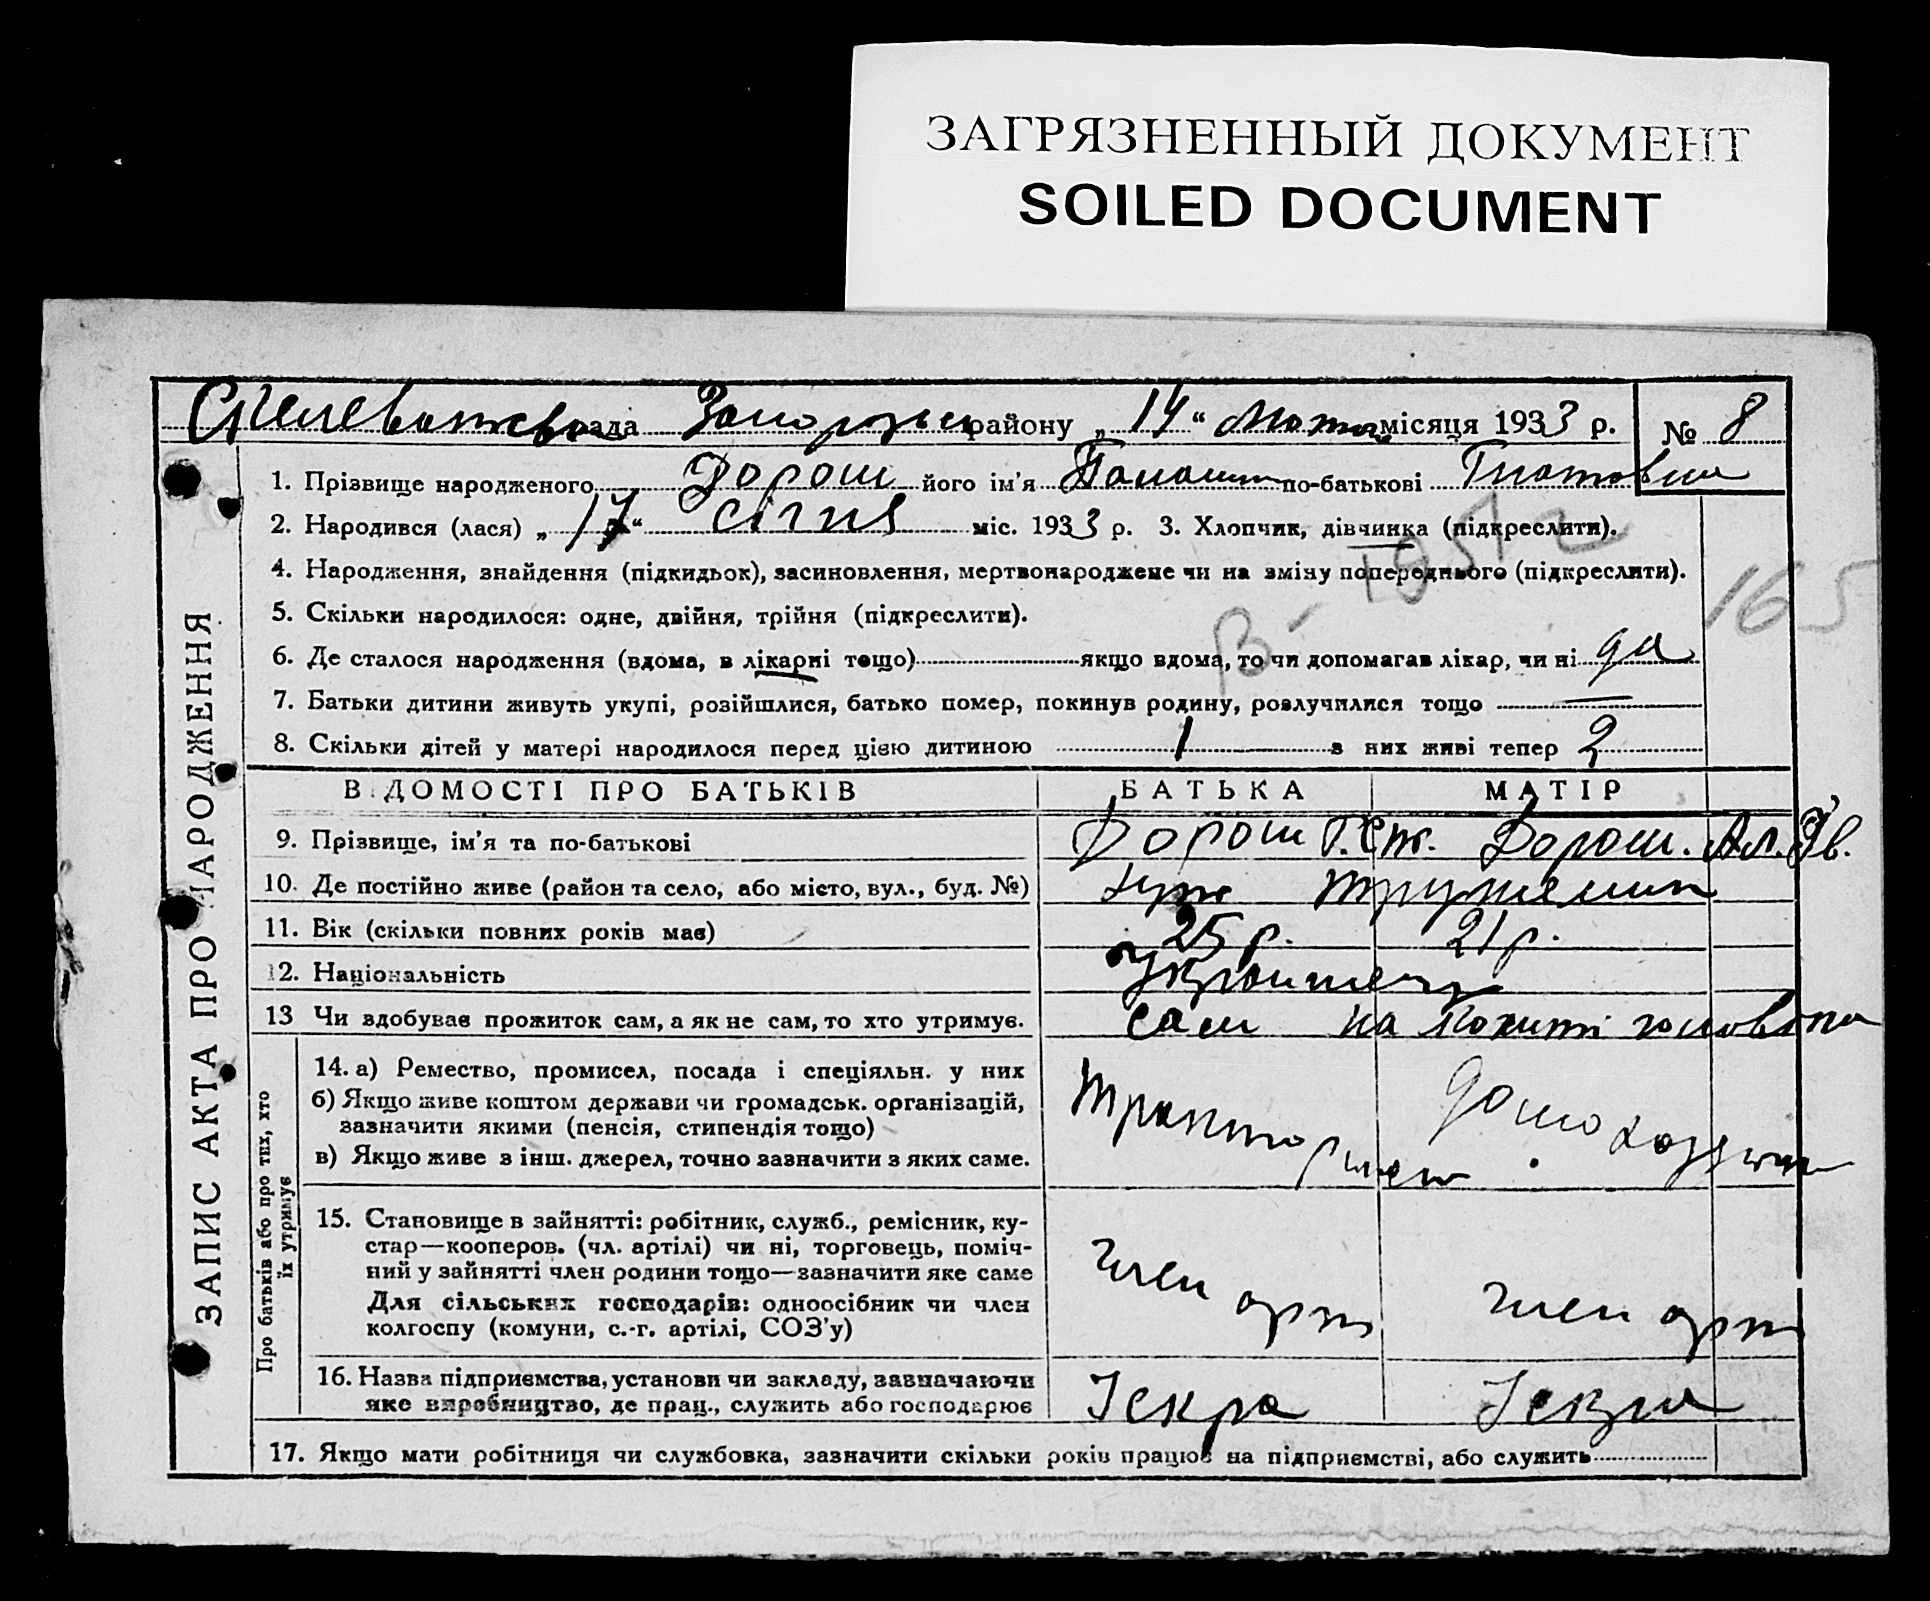 ЗАГРЯЗНЕННЫЙ ДОКУМЕНТ
SOILED DOCUMENT
рада району „ 14 “ місяця 1933 р. № 8
1. Прізвище народженого Дорош його ім'я по-батькові
2. Народився (лася) „ 17 “ січня міс. 1933 р. 3. Хлопчик, дівчинка (підкреслити).
4. Народження, знайдення (підкидьок), засиновлення, мертвонароджене чи на зміну попереднього (підкреслити).
5. Скільки народилося: одне, двійня, трійня (підкреслити).
6. Де сталося народження (вдома, в лікарні тощо) якщо вдома, то чи допомагав лікар, чи ні да
7. Батьки дитини живуть укупі, розійшлися, батько помер, покинув родину, розлучилися тощо —
8. Скільки дітей у матері народилося перед цією дитиною 1 з них живі тепер 2
165
ЗАПИС АКТА ПРО НАРОДЖЕННЯ
ВІДОМОСТІ ПРО БАТЬКІВ БАТЬКА МАТІР
9. Прізвище, ім'я та по-батькові Дорош Дорош.
10. Де постійно живе (район та село, або місто, вул., буд. №)
11. Вік (скільки повних років має) 25 р. 21 р.
12. Національність
13 Чи здобуває прожиток сам, а як не сам, то хто утримує. сам на
Про батьків або про тих, хто
їх утримує
14. а) Ремество, промисел, посада і спеціяльн. у них
б) Якщо живе коштом держави чи громадськ. організацій,
зазначити якими (пенсія, стипендія тощо)
в) Якщо живе з інш. джерел, точно зазначити з яких саме.
15. Становище в зайнятті: робітник, служб., ремісник, ку-
стар—кооперов. (чл. артілі) чи ні, торговець, поміч-
ний у зайнятті член родини тощо—зазначити яке саме
Для сільських господарів: одноосібник чи член
колгоспу (комуни, с.-г. артілі, СОЗ'у)
член арт член арт
16. Назва підприємства, установи чи закладу, зазначаючи
яке виробництво, де прац., служить або господарює
Іскра Іскра
17. Якщо мати робітниця чи службовка, зазначити скільки років працює на підприємстві, або служить